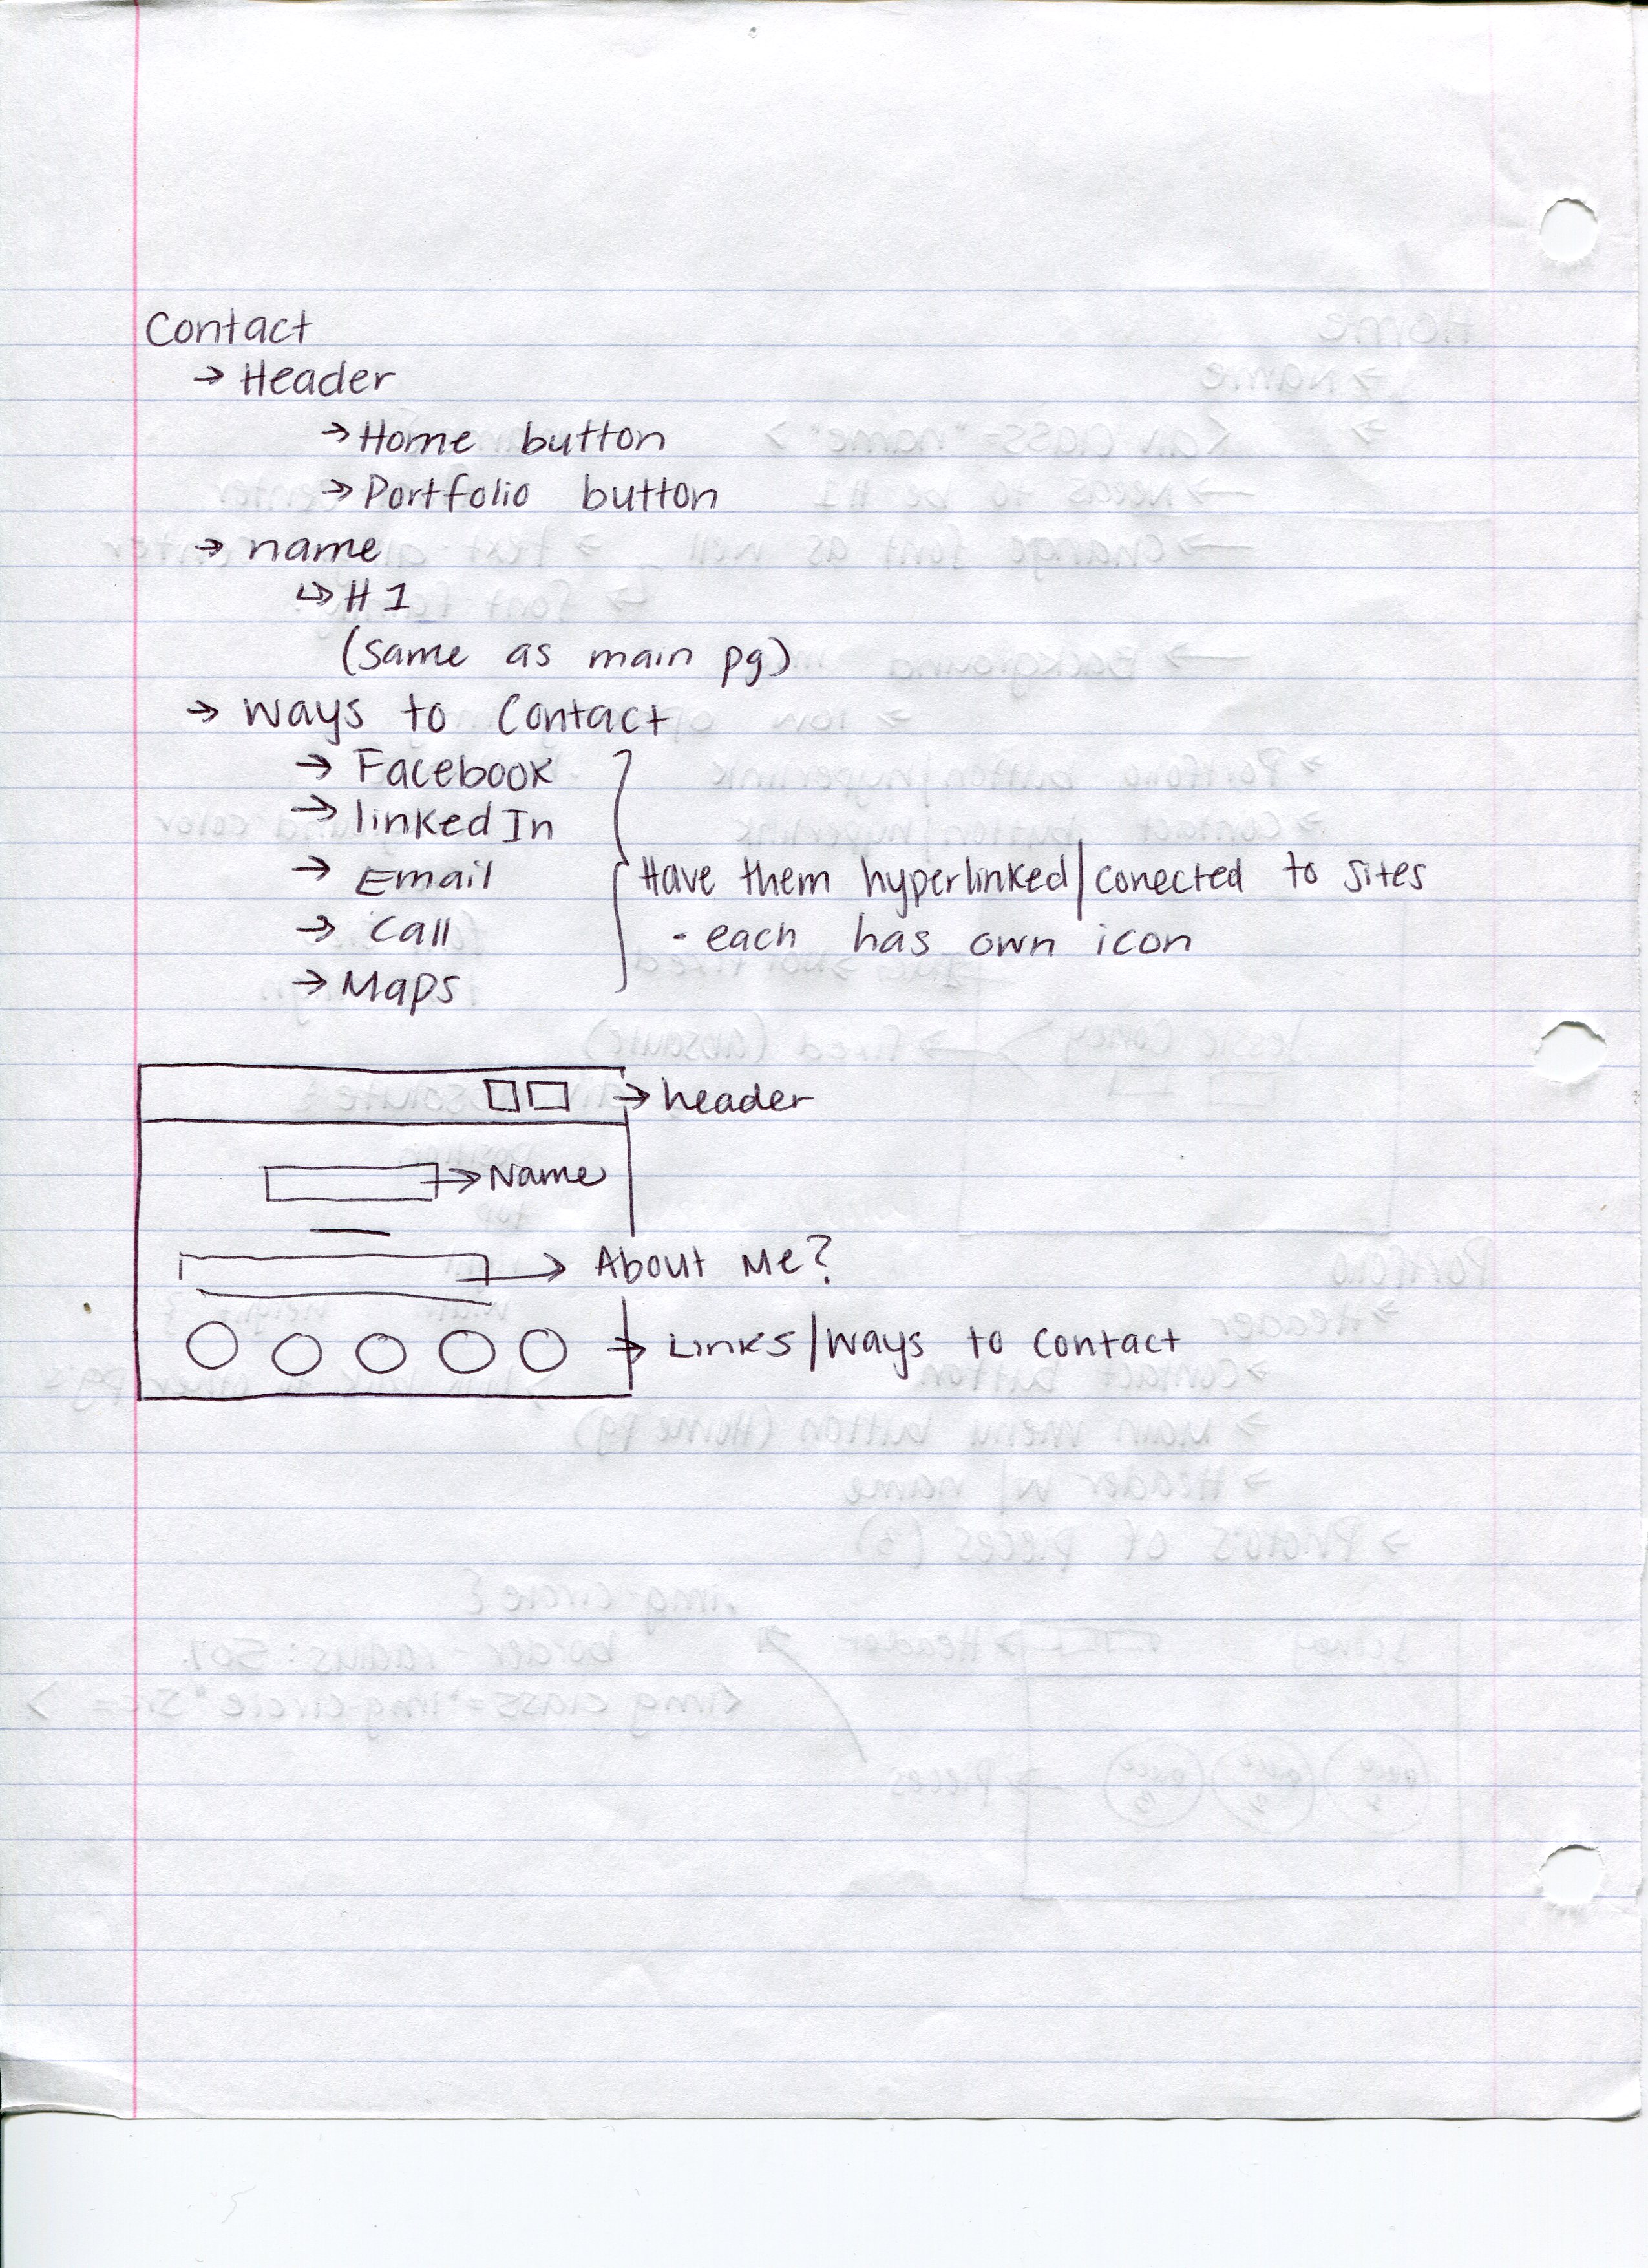 Contact
→ Header
→ Home button
→ Portfolio button
→ name
↳ H1
(same as main pg)
→ ways to contact
→ Facebook
→ linkedIn
→ Email
→ call
→ Maps
Have them hyperlinked/conected to sites
- each has own icon
→ header
→ Name
→ About Me?
→ Links/ways to contact